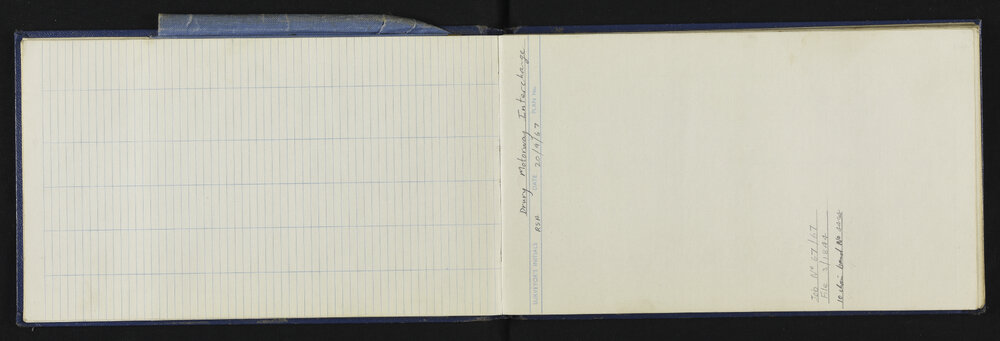 Drury Motorway Interchange
SURVEYOR'S INITIALS RSA DATE 20/9/67 PLAN No.
Job Nº 67/67
File 3/1842
10 chain band. No